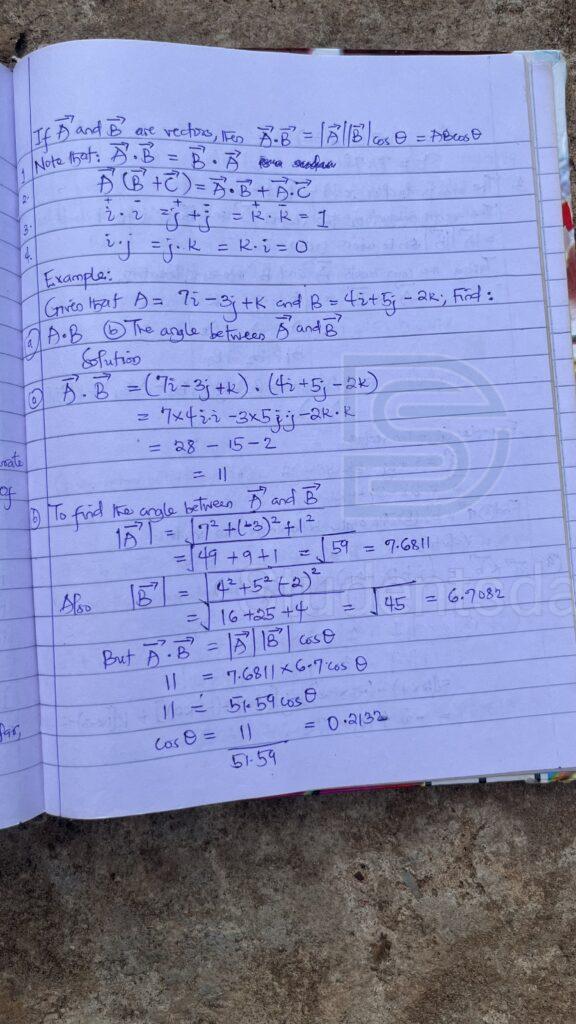 If A⃗ and B⃗ are vectors, then A⃗.B⃗ = |A⃗||B⃗|cosθ = ABcosθ
1 Note that: A⃗.B⃗ = B⃗.A⃗
2. A⃗(B⃗+C⃗) = A⃗.B⃗ + A⃗.C⃗
3. i.i = j+j = k.k = 1
4. i.j = j.k = k.i = 0
Example:
Given that A = 7i-3j+k and B = 4i+5j-2k, Find:
(a) A.B (b) The angle between A⃗ and B⃗
Solution
(a) A⃗.B⃗ = (7i-3j+k).(4i+5j-2k)
= 7x4i.i-3x5j.j-2k.k
= 28 - 15 - 2
= 11
(b) To find the angle between A⃗ and B⃗
|A⃗| = √7²+(-3)²+1²
= √49+9+1 = √59 = 7.6811
Also |B⃗| = √4²+5²(-2)²
= √16+25+4 = √45 = 6.7082
But A⃗.B⃗ = |A⃗||B⃗| cosθ
11 = 7.6811x6.7cosθ
11 = 51.59cosθ
cosθ = 11/51.59 = 0.2132
of